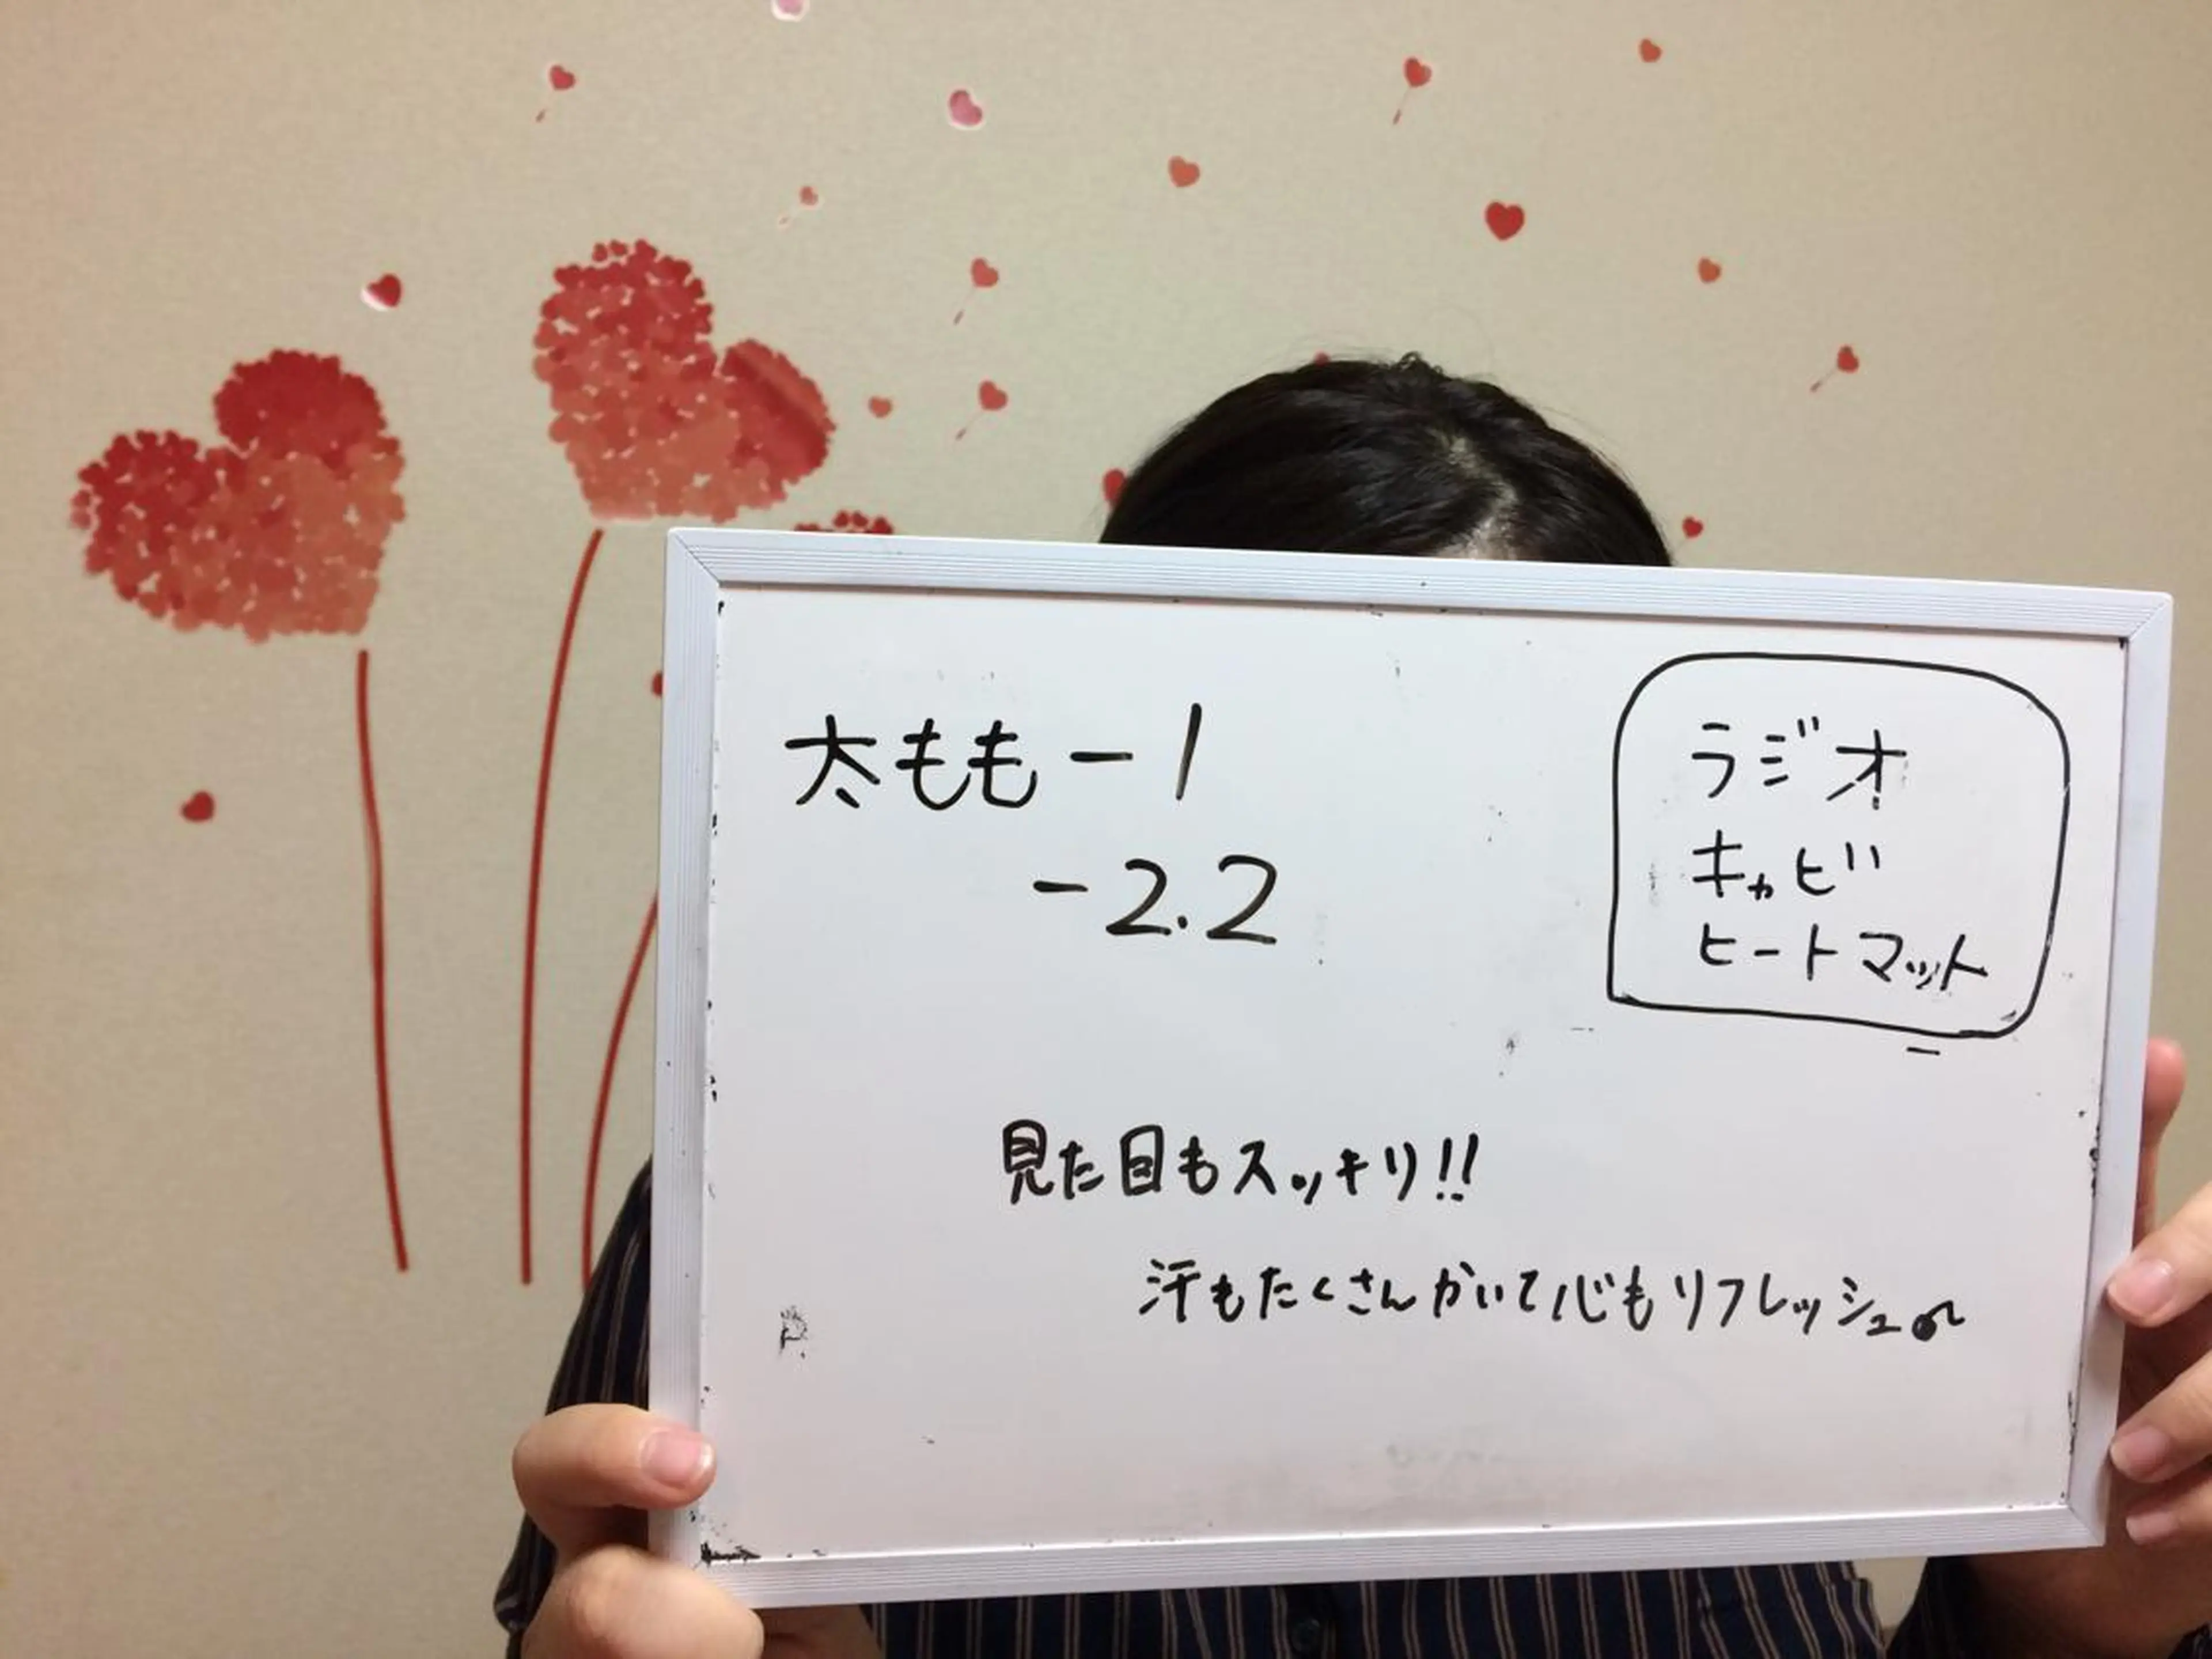 太もも -1
-2.2
ラジオ
キャビ
ヒートマット
見た目もスッキリ!!
汗もたくさんかいて心もリフレッシュ♪